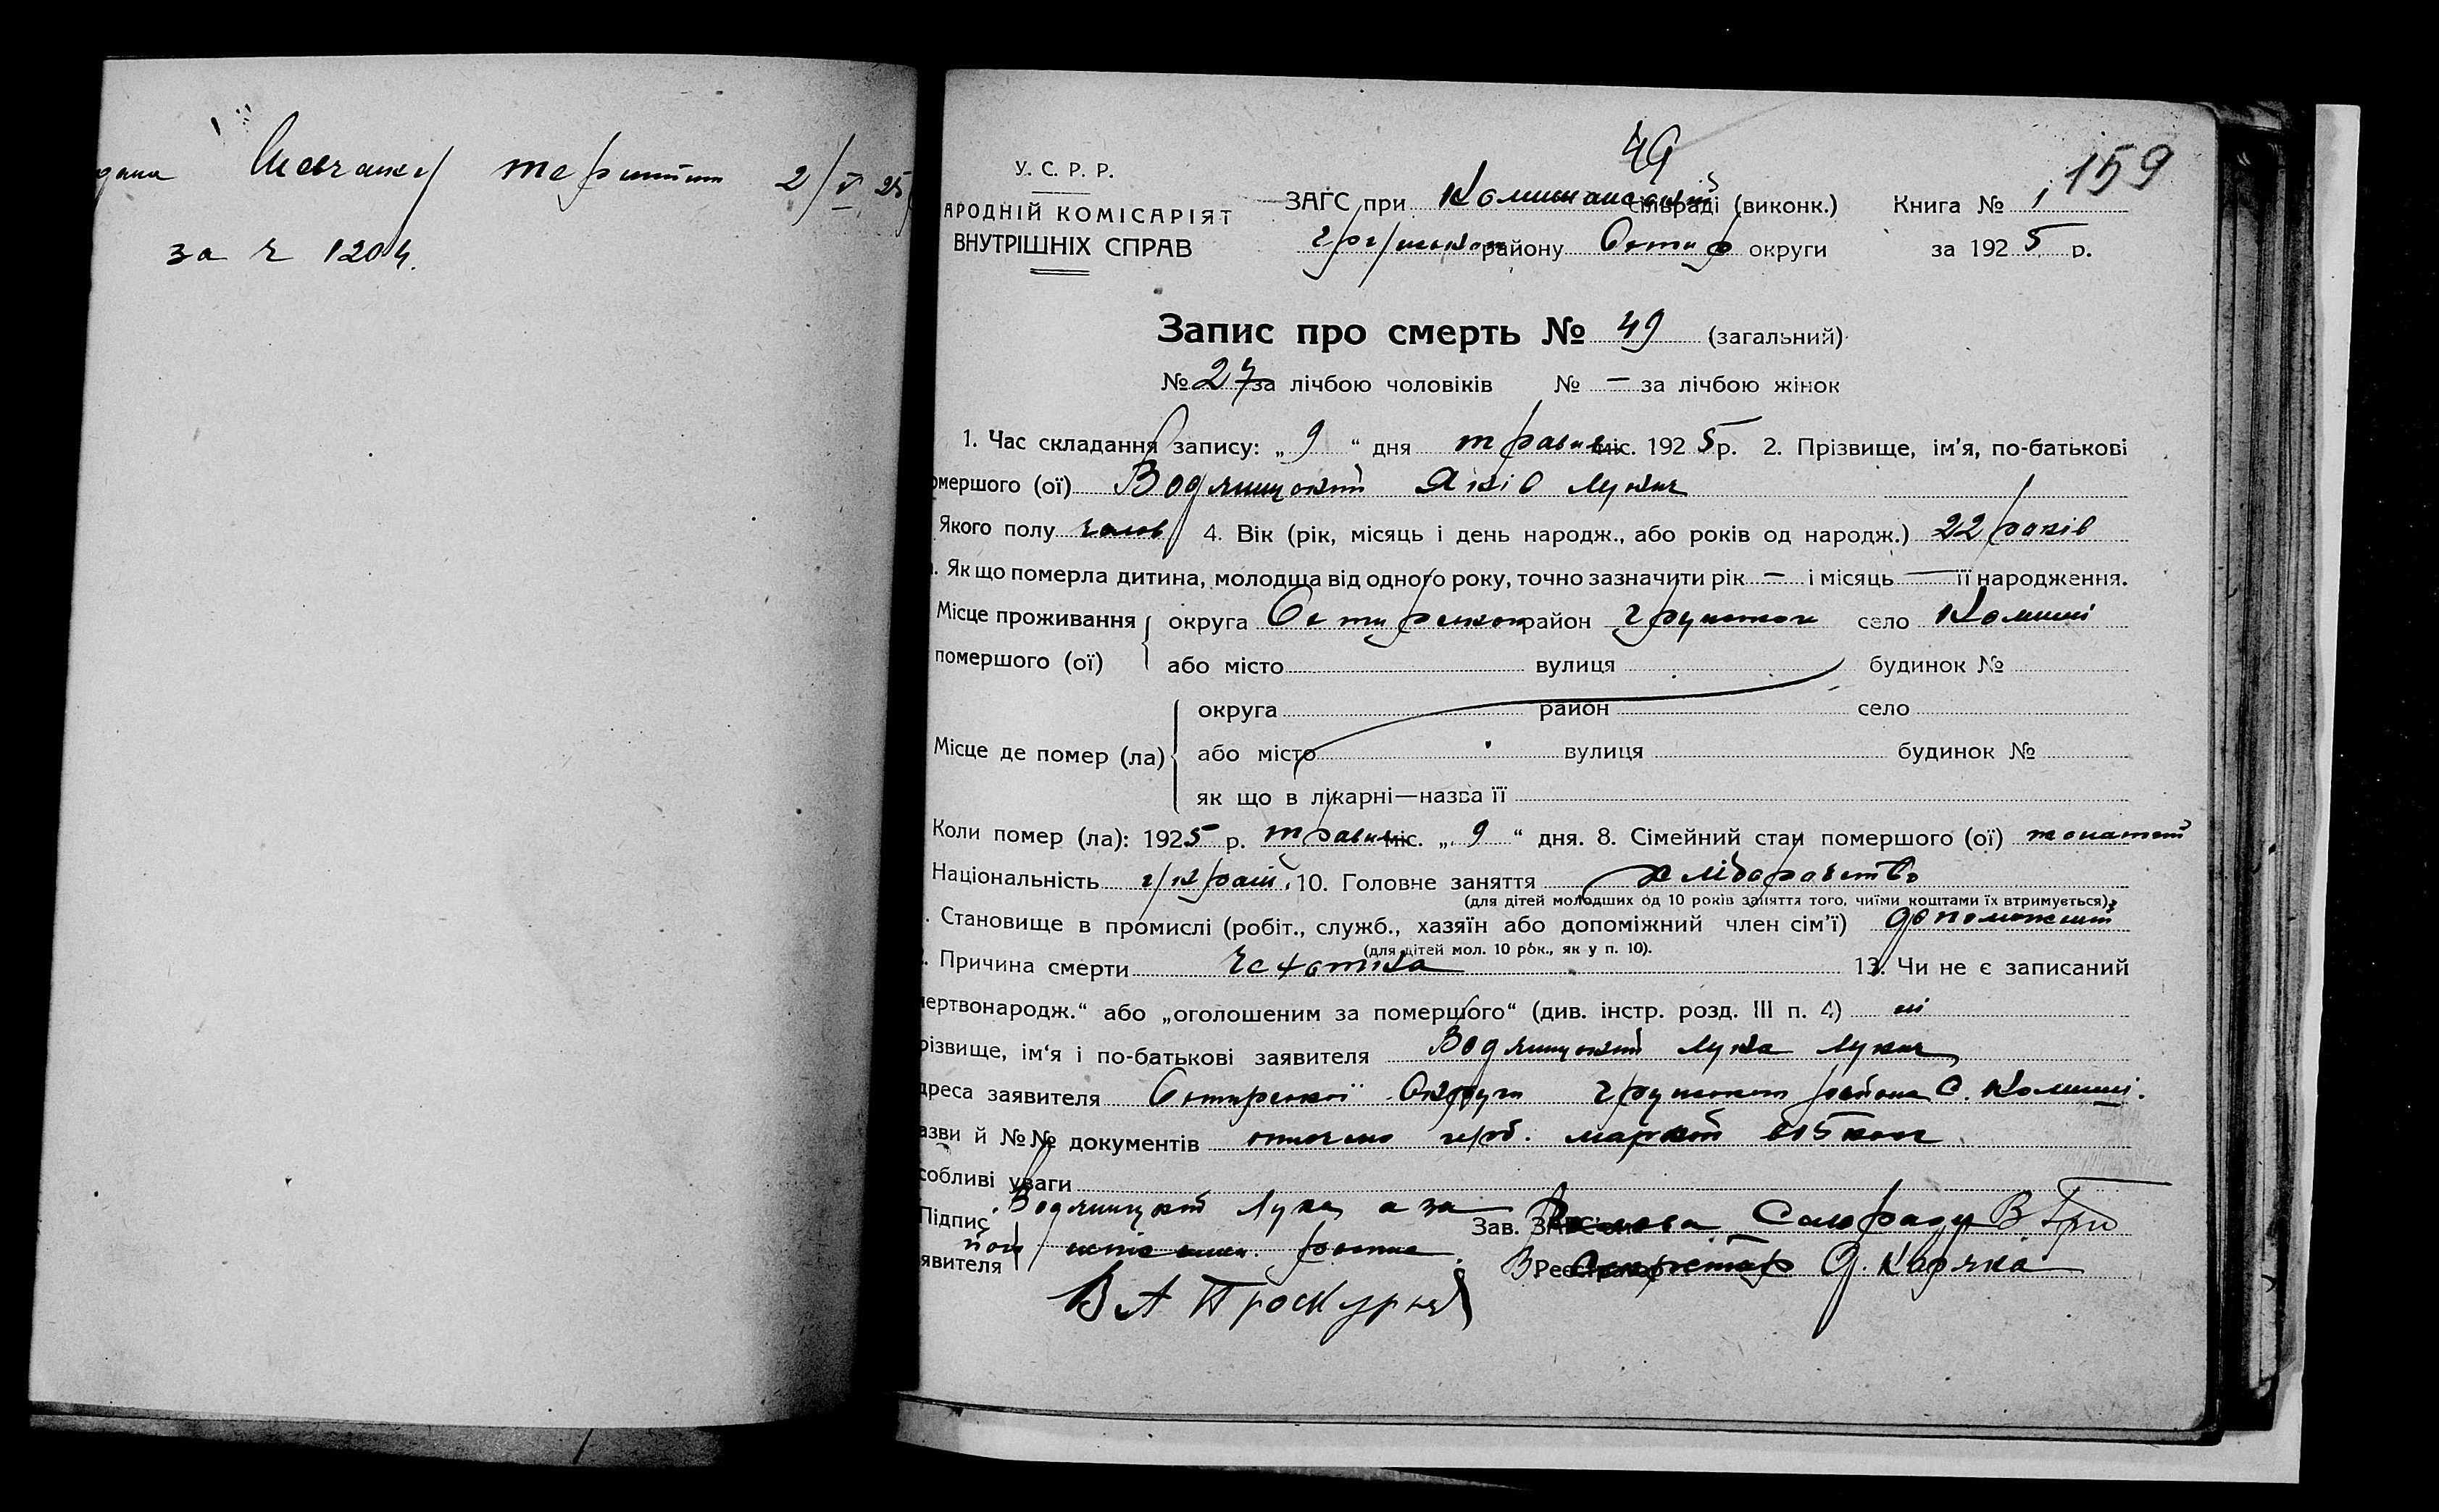 2/V 25
за № 1204.
49
159
У. С. Р. Р.
АРОДНІЙ КОМІСАРІЯТ
ВНУТРІШНІХ СПРАВ
ЗАГС при сільраді (виконк.) Книга № 1
району Охтир округи за 1925 р.
Запис про смерть № 49 (загальний)
№ 27 за лічбою чоловіків № — за лічбою жінок
1. Час складання запису: „ 9 “ дня травня міс. 1925 р. 2. Прізвище, ім'я, по-батькові
омершого (ої) Водяницький Яків Лукич
Якого полу чолов 4. Вік (рік, місяць і день народж., або років од народж.) 22 років
. Як що померла дитина, молодща від одного року, точно зазначити рік — і місяць — її народження.
Місце проживання округа Охтирської район Грунської село Комиші
помершого (ої) або місто вулиця будинок №
округа район село
Місце де помер (ла) або місто вулиця будинок №
як що в лікарні—назва її
Коли помер (ла): 1925 р. травня міс. „ 9 “ дня. 8. Сімейний стан помершого (ої) жонатий
Національність Україн. 10. Головне заняття хліборобство
(для дітей молодших од 10 років заняття того, чиїми коштами їх втримується)
. Становище в промислі (робіт., служб., хазяїн або допоміжний член сім'ї) допоміжний
(для дітей мол. 10 рок., як у п. 10).
. Причина смерти Чехотка 13. Чи не є записаний
мертвонародж.“ або „оголошеним за помершого“ (див. інстр. розд. III п. 4) ні
різвище, ім'я і по-батькові заявителя Водяницький Лука Лукич
дреса заявителя Охтирської Округи Грунської района С. Комиші.
азви й №№ документів оплочено герб. маркой 15 коп
собливі уваги
Підпис Водяницкий Лука а за Зав. ЗАГС'ом Голова Сельради В Гри
явителя росписа Реєстратор Секретар Д. Каряка
В А Проскурня